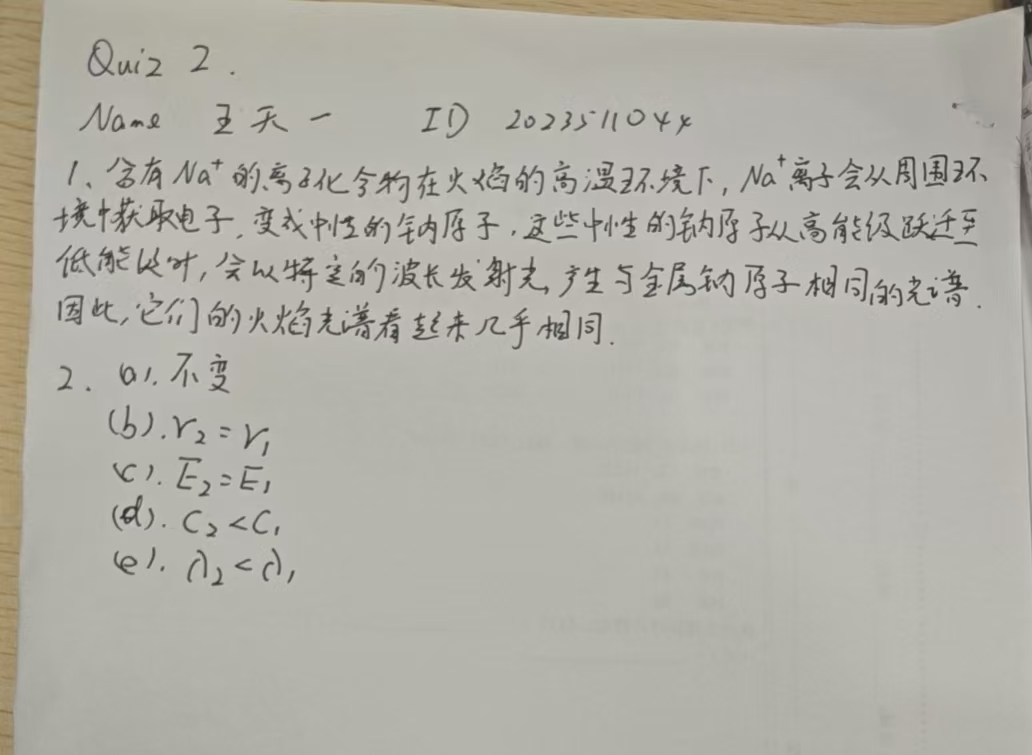 Quiz 2.
Name 王天一 ID 2023511044
1、含有Na⁺的离子化合物在火焰的高温环境下,Na⁺离子会从周围环
境中获取电子,变成中性的钠原子,这些中性的钠原子从高能级跃迁至
低能级时,会以特定的波长发射光,产生与金属钠原子相同的光谱.
因此,它们的火焰光谱看起来几乎相同.
2. a). 不变
(b). r₂=r₁
(c). E₂=E₁
(d). C₂<C₁
(e). λ₂<λ₁